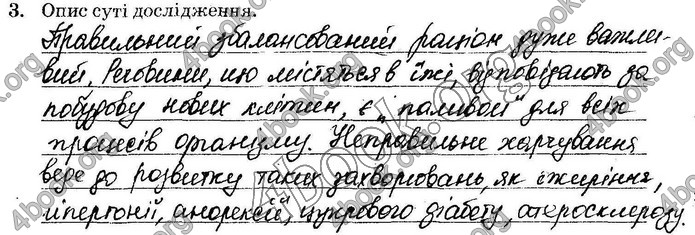 3. Опис суті дослідження.
Правильний збалансований раціон дуже важли-
вий. Речовини, що містяться в їжі, відповідають за
побудову нових клітин, є "паливом" для всіх
процесів організму. Неправильне харчування
веде до розвитку таких захворювань, як ожиріння,
гіпертонії, анорексії, цукрового діабету, атеросклерозу.
4book.org